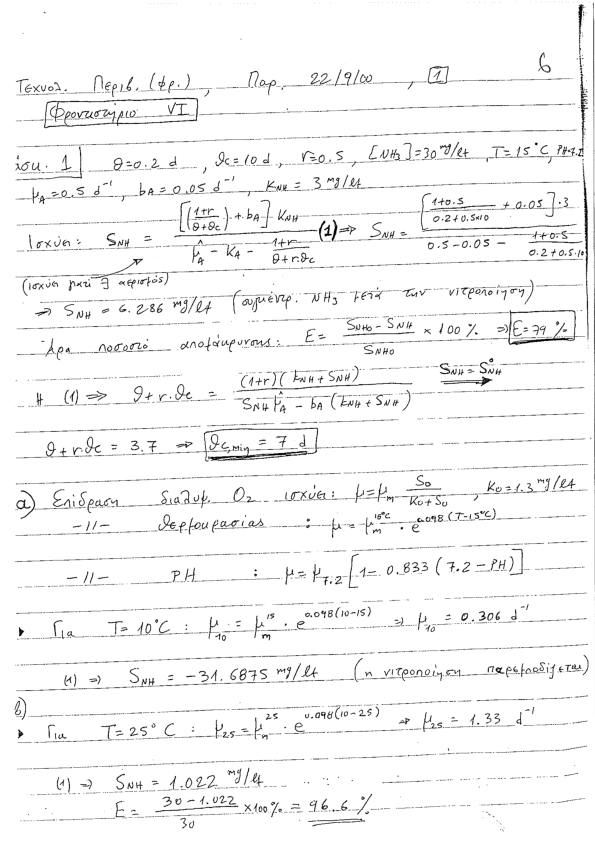 6
Τεχνολ. Περιβ. (φρ.) , Παρ. 22/9/00 , 1
Φροντιστήριο VI
Άσκ. 1 θ=0.2 d , θc=10 d , r=0.5 , [NH3]=30 mg/lt , T=15°C, PH=7.2
μA=0.5 d⁻¹ , bA=0.05 d⁻¹ , KNH = 3 mg/lt
Ισχύει: SNH = [((1+r)/(θ+θc)) + bA] · KNH / (μ̂A - KA - (1+r)/(θ+r·θc)) (1) ⇒ SNH = [(1+0.5)/(0.2+0.5×10) + 0.05] · 3 / (0.5-0.05 - (1+0.5)/(0.2+0.5·10))
(ισχύει γιατί ∃ αερισμός)
⇒ SNH = 6.286 mg/lt (συγκέντρ. NH3 μετά την νιτροποίηση)
Άρα ποσοστό απομάκρυνσης: E = (SNHO - SNH)/SNHO × 100 % ⇒ E=79 %
Η (1) ⇒ θ+r·θc = (1+r)(kNH+SNH) / (SNH μ̂A - bA (kNH+SNH)) SNH = S°NH
θ+rθc = 3.7 ⇒ θc,min = 7 d
α) Επίδραση διαλυμ. O2 ισχύει: μ=μm So/(Ko+So) , Ko=1.3 mg/lt
-//- θερμοκρασίας : μ = μm^15°C · e^0.098(T-15°C)
-//- PH : μ=μ7.2 [1- 0.833 (7.2-PH)]
▸ Για T=10°C : μ10 = μm^15 · e^0.098(10-15) ⇒ μ10 = 0.306 d⁻¹
(1) ⇒ SNH = -31.6875 mg/lt (η νιτροποίηση παρεμποδίζεται)
β)
▸ Για T=25°C : μ25=μm^25 · e^0.098(10-25) ⇒ μ25 = 1.33 d⁻¹
(1) ⇒ SNH = 1.022 mg/lt
E = (30-1.022)/30 ×100% = 96.6 %